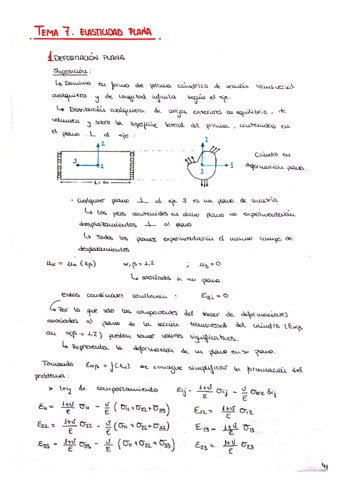 TEMA 7. ELASTICIDAD PLANA
1. DEFORMACIÓN PLANA
Suposición:
↳ Dominio en forma de prisma cilíndrico de sección transversal
cualquiera y de longitud infinita según el eje.
↳ Distribución cualquiera de cargas exteriores en equilibrio, de
volumen y sobre la superficie lateral del prisma, contenidas en
el plano ⊥ al eje:
2
3
1
L = ∞
2
3
1
Cilindro en
deformación plana
· Cualquier plano ⊥ al eje 3 es un plano de simetría
↳ Los ptos contenidos en dicho plano no experimentarán
desplazamientos ⊥ al plano
↳ Todos los planos experimentarán el mismo campo de
desplazamientos
uα = uα (xβ) α, β = 1,2 ; u3 = 0
↳ asociadas a un plano
Estas condiciones conllevan: ε3i = 0
↳ Por lo que sólo las componentes del tensor de deformaciones
asociadas al plano de la sección transversal del cilindro (εαβ
con αβ = 1,2) pueden tomar valores significativos.
↳ Representa la deformación de un plano en su plano.
Tomando εαβ = f(xα) se consigue simplificar la formulación del
problema:
* Ley de comportamiento εij = (1+ν)/E σij − ν/E σkk δij
ε11 = (1+ν)/E σ11 − ν/E (σ11 + σ22 + σ33) ε12 = (1+ν)/E σ12
ε22 = (1+ν)/E σ22 − ν/E (σ11 + σ22 + σ33) ε13 = (1+ν)/E σ13
ε33 = (1+ν)/E σ33 − ν/E (σ11 + σ22 + σ33) ε23 = (1+ν)/E σ23